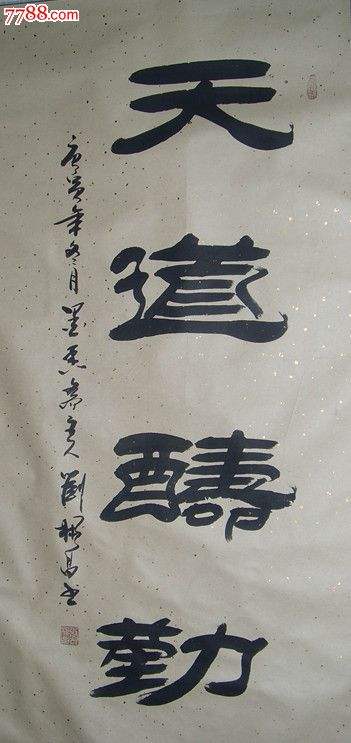 7788.com
天道酬勤
庚寅年冬月墨香斋主人刘
书